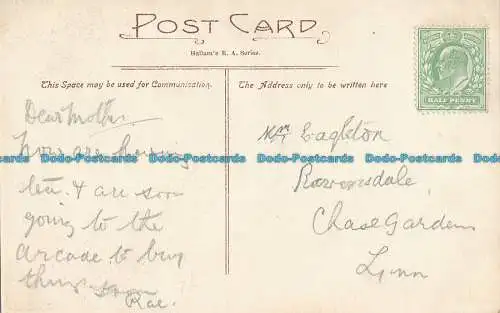 POST CARD
Hallam's R. A. Series.
This Space may be used for Communication.
The Address only to be written here
HALF PENNY
Dear Mother
Now are having
tea. & are soon
going to the
arcade to buy
things
Rae.
Mrs Eagleton
Ravensdale,
Chase Gardens
Lynn
Postcards Does-Postcards Does-Postcards Does-Postcards Does-Postcards